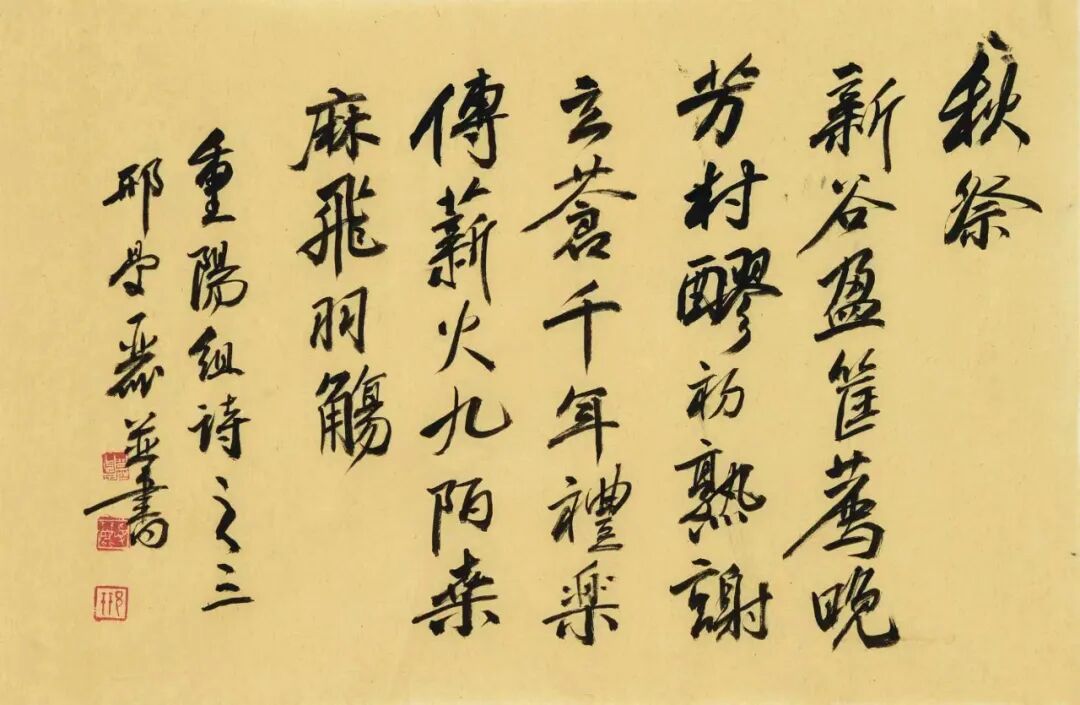 秋祭
新谷盈筐薦晚
芳村醪初熟謝
玄蒼千年禮樂
傳薪火九陌桑
麻飛羽觴
重陽組詩之三
邢 並書
邢